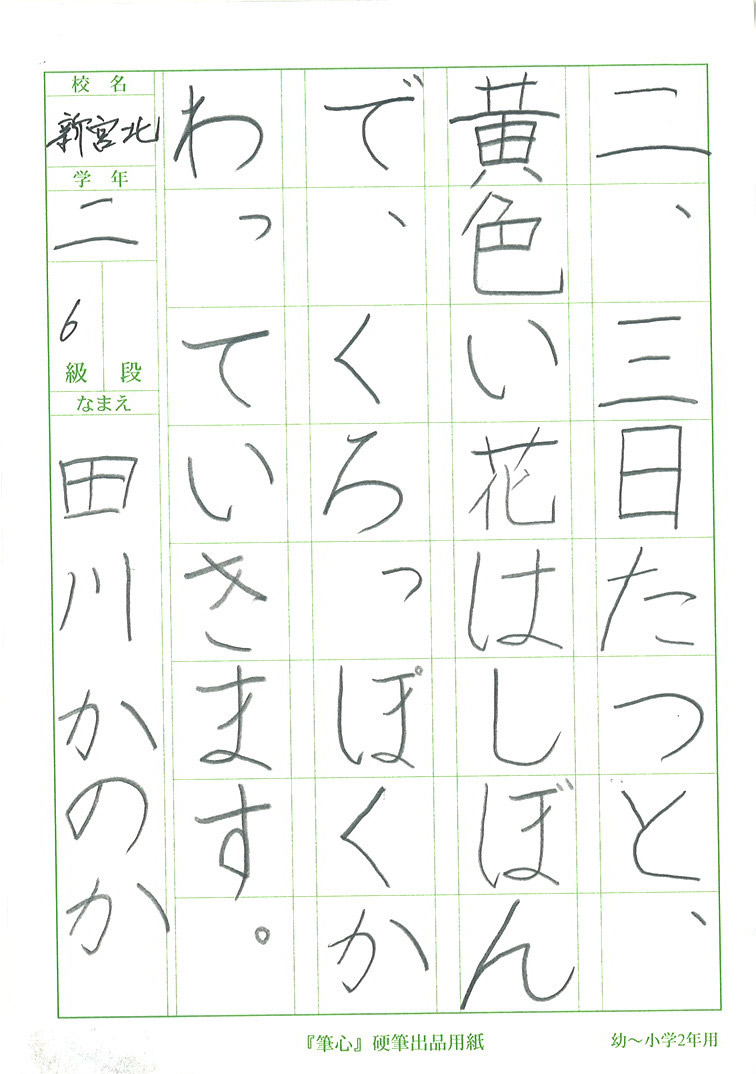 二、三日たつと、
黄色い花はしぼん
で、くろっぽくか
わっていきます。
校名
新宮北
学年
二
6
級 段
なまえ
田川かのか
『筆心』硬筆出品用紙
幼～小学2年用